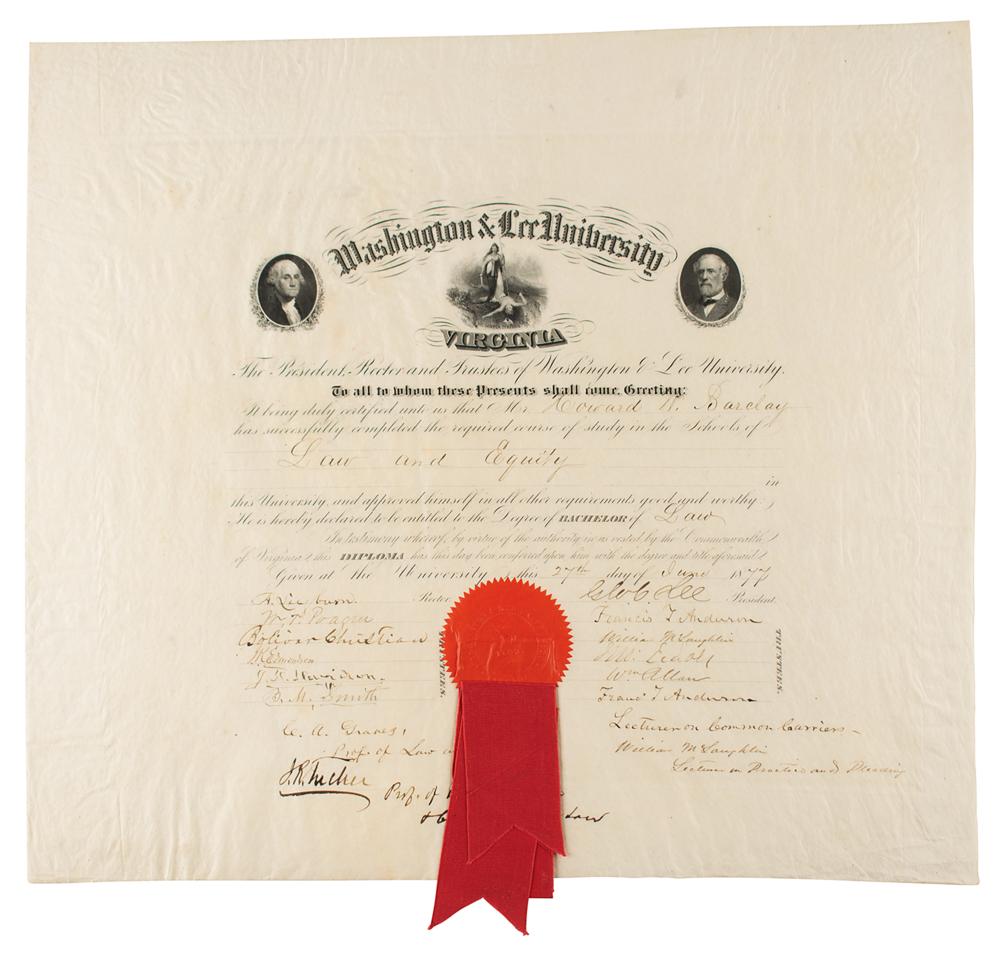 Washington & Lee University
VIRGINIA
The President, Rector and Trustees of Washington & Lee University.
To all to whom these Presents shall come, Greeting:
It being duly certified unto us that Mr. Howard W. Barclay
has successfully completed the required course of study in the Schools of
Law and Equity
in
this University, and approved himself in all other requirements good and worthy;
He is hereby declared to be entitled to the Degree of BACHELOR of Law
In testimony whereof, by virtue of the authority in us vested by the Commonwealth
of Virginia, this DIPLOMA has this day been conferred upon him with the degree and title aforesaid.
Given at the University, this 27th day of June 1877
Rector
G.W.C. Lee President.
Francis T. Anderson
Bolivar Christian
William McLaughlin
Edmondson
Wm Allan
Smith
Francis T. Anderson
TRUSTEES.
C. A. Graves,
Lecturer on Common Carriers
Prof. of Law
William McLaughlin
J. R. Tucker
Lecturer on Practice and Pleading
Prof. of
Law